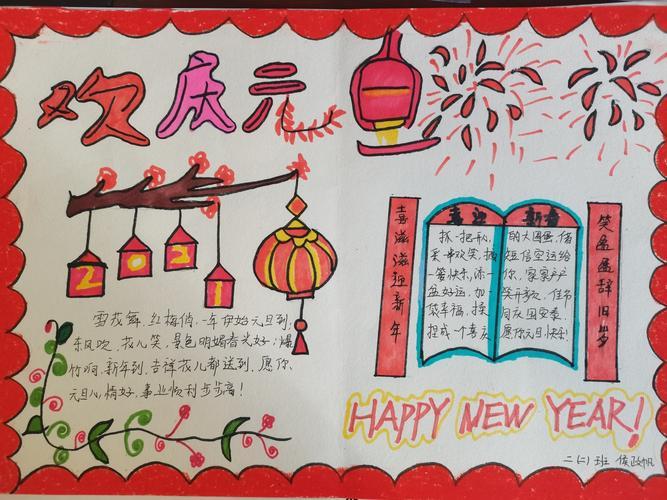 欢庆元旦
2021
雪花舞,红梅俏,一年伊始元旦到;
东风吹,花儿笑,景色明媚春光好;爆
竹响,新年到,吉祥花儿都送到,愿你
元旦心情好,事业顺利步步高!
喜滋滋迎新年
喜迎
抓一把开心,
采一串欢笑,撷
一筐快乐,添一
盆好运,加一
袋幸福,揉
捏成一个喜庆
新春
的大圆蛋,借
短信空运给
你,家家户户
笑开颜,佳节
同庆国安泰,
愿你元旦快乐!
笑盈盈辞旧岁
HAPPY NEW YEAR!
二(二)班